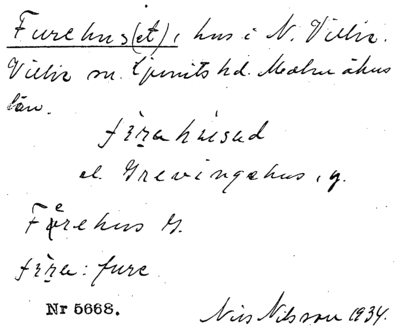 Furehus(et), hus i N. Vielie.
Vielie sn. Ljunits hd. Malmöhus
län.
fɩ̀ra hùsəd
el. Grevingahus, g.
Førehus G.
fɩ̀ra: fure
Nr 5668.
Nils Nilsson 1934.